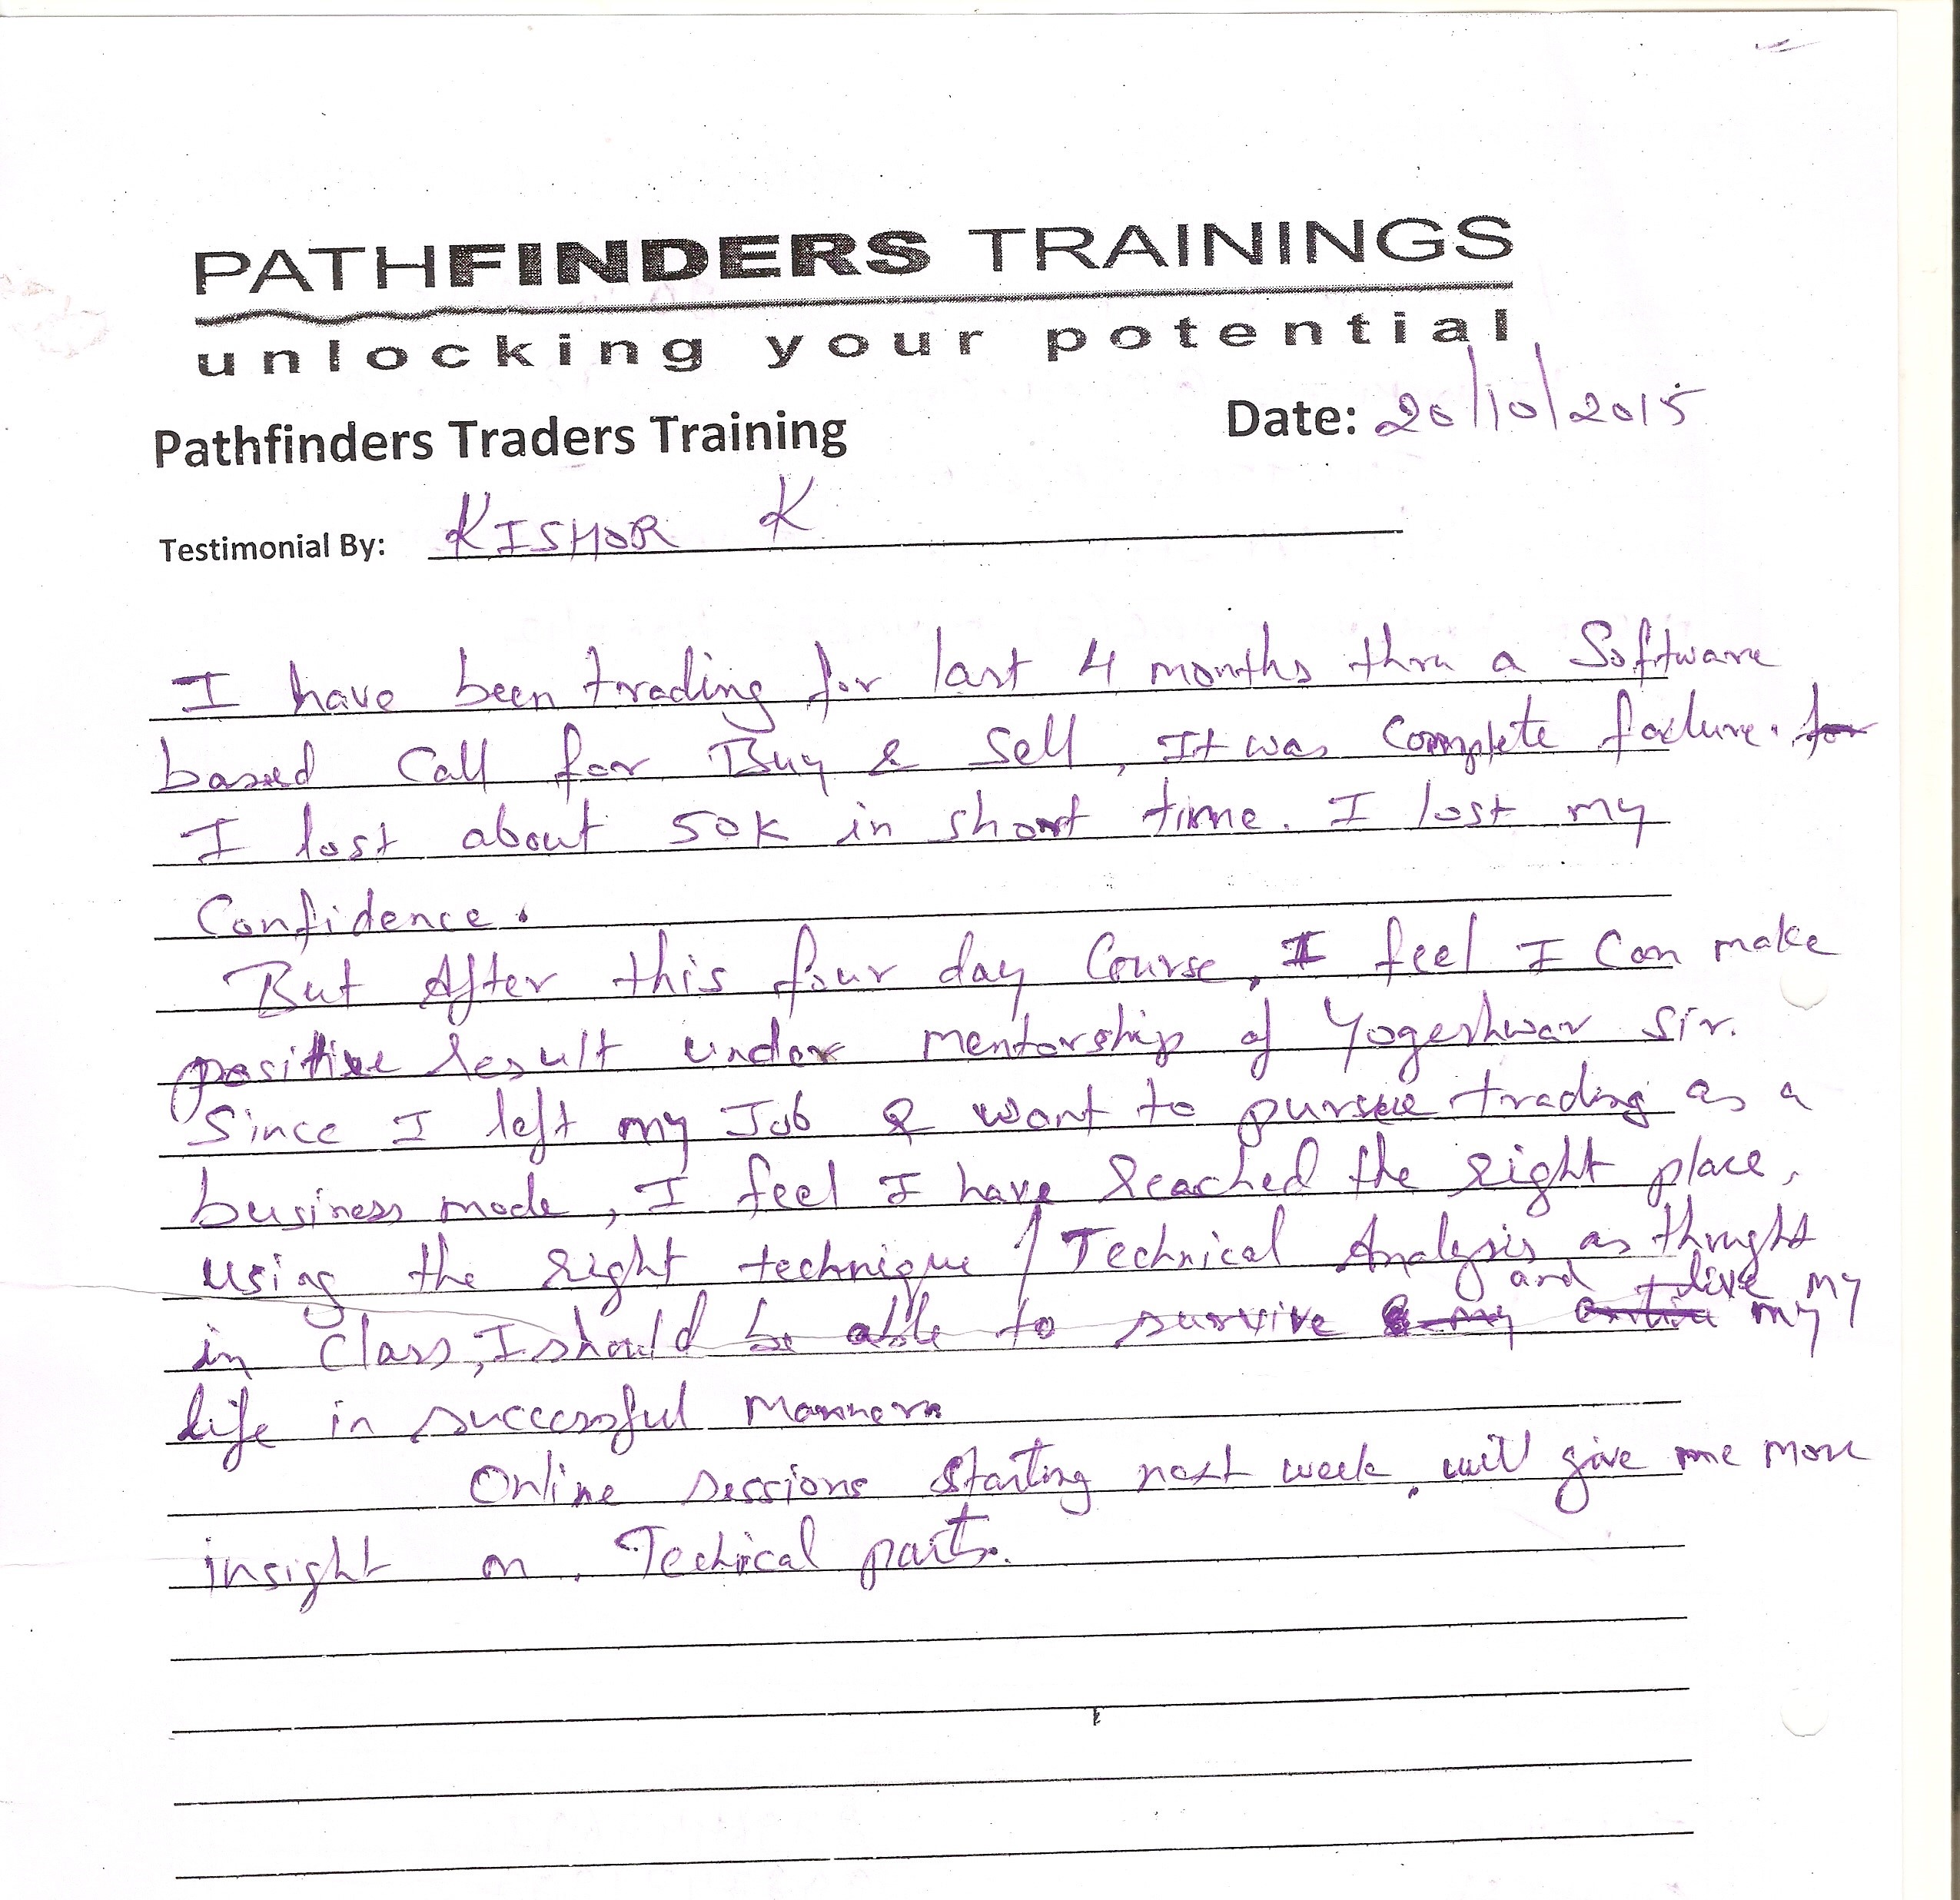 PATHFINDERS TRAININGS
unlocking your potential
Pathfinders Traders Training Date: 20/10/2015
Testimonial By: KISHOR K
I have been trading for last 4 months thru a Software
based Call for Buy & Sell, It was Complete failure. for
I lost about 50K in short time. I lost my
Confidence.
But After this four day Course, I feel I Can make
positive result under mentorship of Yogeshwar Sir.
Since I left my Job & want to pursue trading as a
business mode, I feel I have reached the right place,
using the right technique / Technical Analysis as thought
and live my
in Class, I should be able to survive & my entire my
life in successful manner
Online sessions starting next week, will give me more
insight on Techical parts.